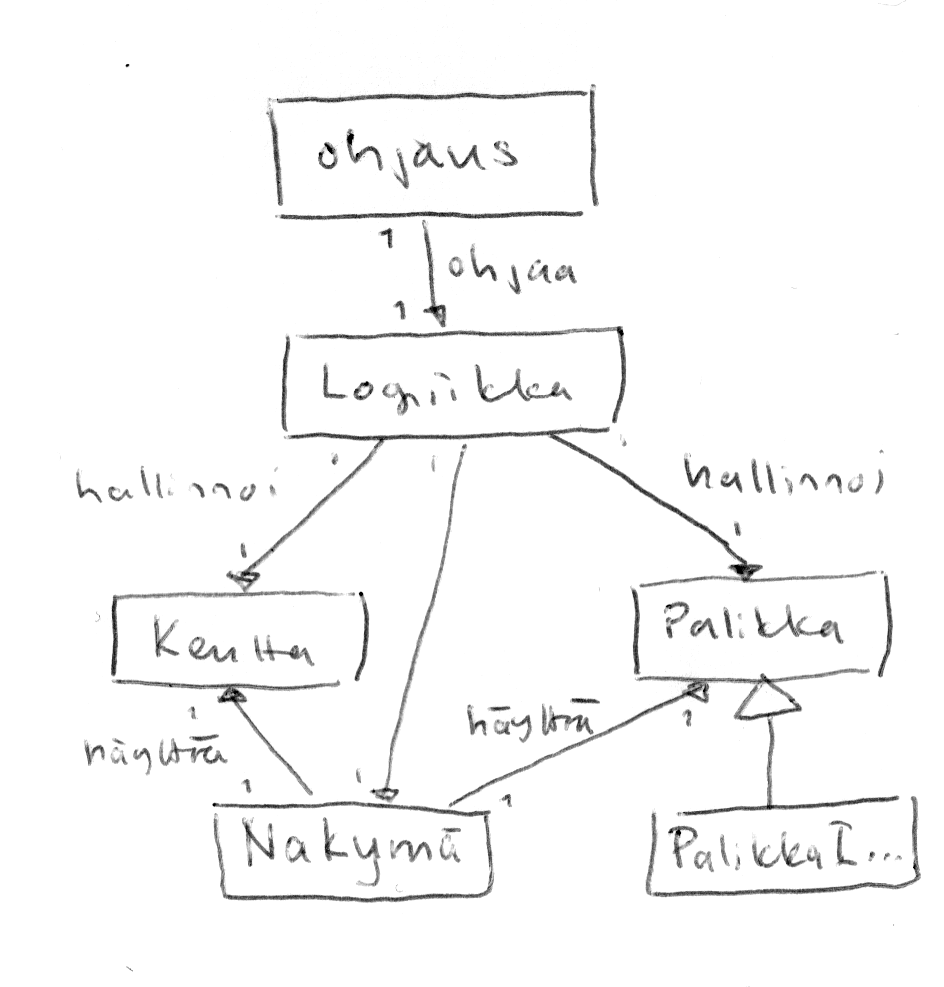 ohjaus
1
ohjaa
1
Logiikka
1
1
1
hallinnoi
hallinnoi
1
1
Kenttä
Palikka
1
näyttää
näyttää
1
1
1
1
Näkymä
PalikkaI...